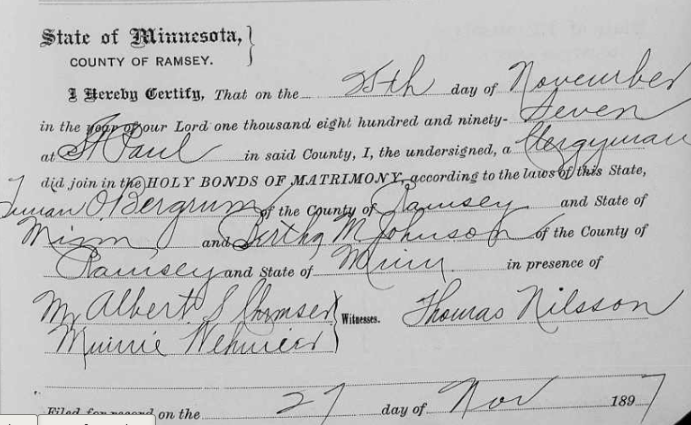 State of Minnesota,
COUNTY OF RAMSEY.
I Hereby Certify, That on the 25th day of November
in the year of our Lord one thousand eight hundred and ninety- Seven
at St Paul in said County, I, the undersigned, a Clergyman
did join in the HOLY BONDS OF MATRIMONY, according to the laws of this State,
O Bergrum of the County of Ramsey and State of
Minn and Bertha M Johnson of the County of
Ramsey and State of Minn. in presence of
Mr Albert S Witnesses. Thomas Nilsson
Minnie
Filed for record on the 27 day of Nov 1897